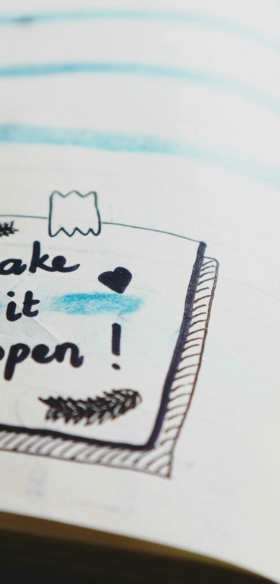 ake
it
ppen!